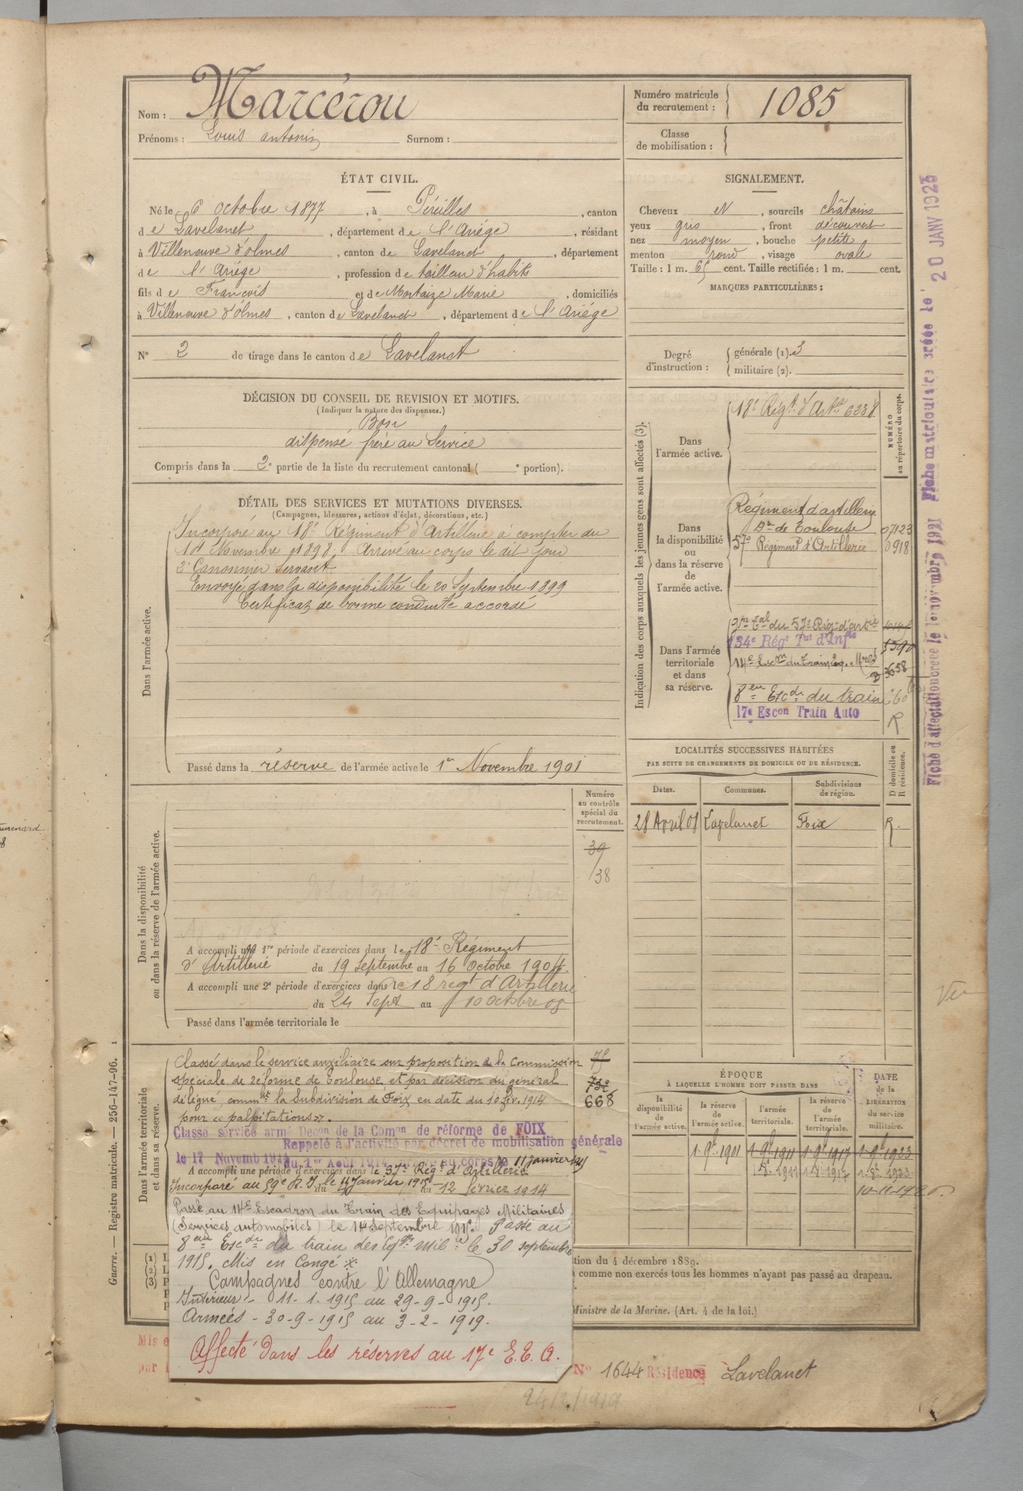 Nom : Marcérou
Prénoms : Louis antonin Surnom :
Numéro matricule du recrutement : 1085
Classe de mobilisation :
ÉTAT CIVIL.
Né le 6 octobre 1877, à Péreilles, canton
de Lavelanet, département de l'Ariége, résidant
à Villeneuve d'olmes, canton de Lavelanet, département
de l'Ariége, profession de tailleur d'habits
fils de François et de Mortaize Marie, domiciliés
à Villeneuve d'olmes, canton de Lavelanet, département de l'Ariége
N° 2 de tirage dans le canton de Lavelanet
SIGNALEMENT.
Cheveux N, sourcils châtains
yeux gris, front découvert
nez moyen, bouche petite
menton rond, visage ovale
Taille : 1 m. 65 cent. Taille rectifiée : 1 m. cent.
MARQUES PARTICULIÈRES :
Degré d'instruction : générale (1). 3
militaire (2).
DÉCISION DU CONSEIL DE REVISION ET MOTIFS.
(Indiquer la nature des dispenses.)
Bon
dispensé frère au Service
Compris dans la 2e partie de la liste du recrutement cantonal ( e portion).
DÉTAIL DES SERVICES ET MUTATIONS DIVERSES.
(Campagnes, blessures, actions d'éclat, décorations, etc.)
Dans l'armée active.
Incorporé au 18e Régiment d'Artillerie à compter du
1er Novembre 1898, Arrivé au corps le dit jour
2e Canonnier Servant
Envoyé dans la disponibilité le 20 Septembre 1899
Certificat de bonne conduite accordé
Passé dans la réserve de l'armée active le 1er Novembre 1901
Indication des corps auxquels les jeunes gens sont affectés (3).
NUMÉRO au répertoire du corps.
Dans l'armée active.
18e Régt d'Artie 6238
Dans la disponibilité ou dans la réserve de l'armée active.
Régiment d'artillerie
de Toulouse 07123
57e Régiment d'Artillerie 0918
Dans l'armée territoriale et dans sa réserve.
du 57e Régt d'artie
134e Régt Tal d'Infie
8e Escon du train
17e Escon Train Auto R
LOCALITÉS SUCCESSIVES HABITÉES
PAR SUITE DE CHANGEMENTS DE DOMICILE OU DE RÉSIDENCE.
D domicile ou R résidence.
Dates. Communes. Subdivisions de région.
28 Avril 01 Lavelanet Foix R.
Numéro au contrôle spécial du recrutement.
39
38
Dans la disponibilité ou dans la réserve de l'armée active.
A accompli une 1re période d'exercices dans le 18e Régiment
d'Artillerie du 19 septembre au 16 octobre 1904.
A accompli une 2e période d'exercices dans le 18 régt d'Artillerie
du 24 Sept au 10 octobre 08
Passé dans l'armée territoriale le
Dans l'armée territoriale et dans sa réserve.
Classé dans le service auxiliaire sur proposition de la Commission
spéciale de réforme de Toulouse et par décision du général
délégué commt la Subdivision de Foix en date du 10 fév. 1914
pour "palpitations".
668
Classé service armé Décon de la Comon de réforme de FOIX
Rappelé à l'activité par décret de mobilisation générale
le 17 Novembt 1914 du 1er Août 1914 11 janvier
A accompli une période d'exercices dans le 57e Régt d'Artillerie
Incorporé au 59e R.I. le 11 Janvier 1915 au 12 février 1914
Passé au 14e Escadron du Train des Equipages Militaires
(Services automobiles) le 14 Septembre 1915. Passé au
8e Escon du train des Eqges Milres le 30 septembre
1915. Mis en Congé *
Campagnes contre l'Allemagne
Intérieur - 11-1-1915 au 29-9-1915.
Armées - 30-9-1915 au 3-2-1919.
Affecté dans les réserves au 17e E.T.A.
ÉPOQUE
À LAQUELLE L'HOMME DOIT PASSER DANS
la disponibilité de l'armée active. la réserve de l'armée active. l'armée territoriale. la réserve de l'armée territoriale.
DATE de la LIBÉRATION du service militaire.
1 9bre 1901 1 9bre 1911 1 9bre 1917 1 9bre 1923
tion du 4 décembre 1889.
comme non exercés tous les hommes n'ayant pas passé au drapeau.
Ministre de la Marine. (Art. 4 de la loi.)
(1)
(2)
(3)
Mis e
par
N° 1644 Résidence Lavelanet
24/2/1919
Guerre. — Registre matricule. — 256-147-96.
Fiche d'affectation créée le 1 novembre 1921 Fiche matriculaire créée le 20 JANV 1925